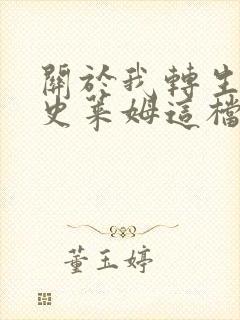 關於我轉生
史萊姆這檔
董玉婷